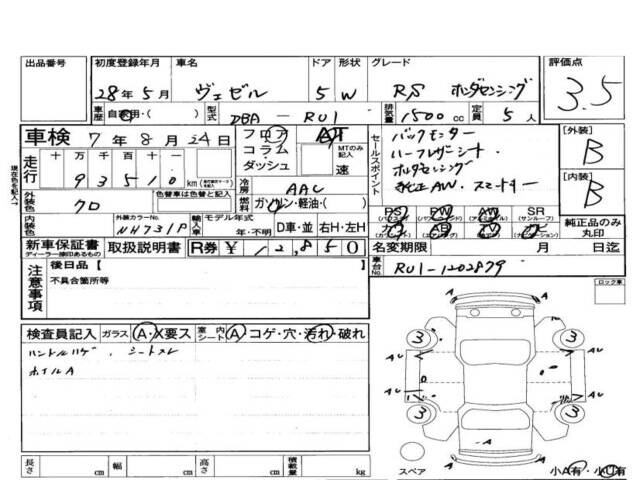 出品番号 初度登録年月 車名 ドア 形状 グレード 評価点
28年5月 ヴェゼル 5 W RS ホンダセンシング 3.5
車歴 自家用・( ) 型式 DBA - RU1 排気量 1500 cc 定員 5 人
車検 7年8月24日 フロア AT
コラム MTのみ記入
ダッシュ 速
走行 十 万 千 百 十 一
93510 km
セールスポイント
バックモニター
ハーフレザーシート.
ホンダセンシング
純正AW. スマートキー
[外装] B
[内装] B
現在色を記入→
外装色 クロ 色替車は替と記入
冷房 AAC
燃料 ガソリン・軽油・( )
PS PW AW SR
(サンルーフ)
純正品のみ丸印
内装色 外装カラーNo. NH731P 輸入車 モデル年式 年・不明 D車・並 右H・左H
新車保証書 取扱説明書 R券 ¥12,850
ディーラー捺印あるもの
名変期限 月 日迄
車台No. RU1-1202879
注意事項
後日品【
不具合箇所等
ロック車
検査員記入 ガラス A・X要ス 室内シート A コゲ・穴・汚れ・破れ
ハンドルハゲ. シートスレ
ホイルA
3 3
AU AU
AU AU
3 3
A
スペア 小A有・小U有
長さ cm 幅 cm 高さ cm 積載量 kg